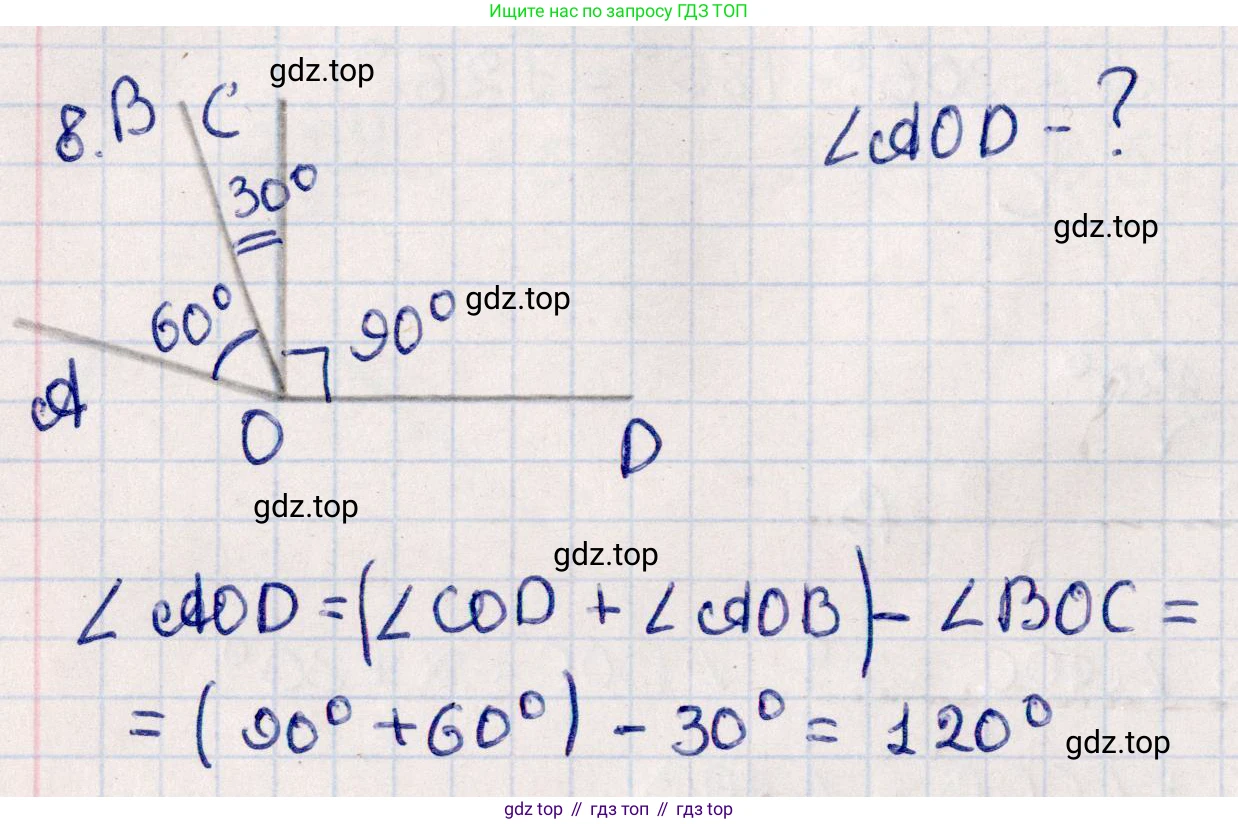 Ищите нас по запросу ГДЗ ТОП
gdz.top
8. B C
∠AOD - ?
30°
gdz.top
60°
90° gdz.top
A
O
D
gdz.top
gdz.top
∠AOD = (∠COD + ∠AOB) - ∠BOC =
= (90° + 60°) - 30° = 120°
gdz.top
gdz top // гдз топ // гдз top